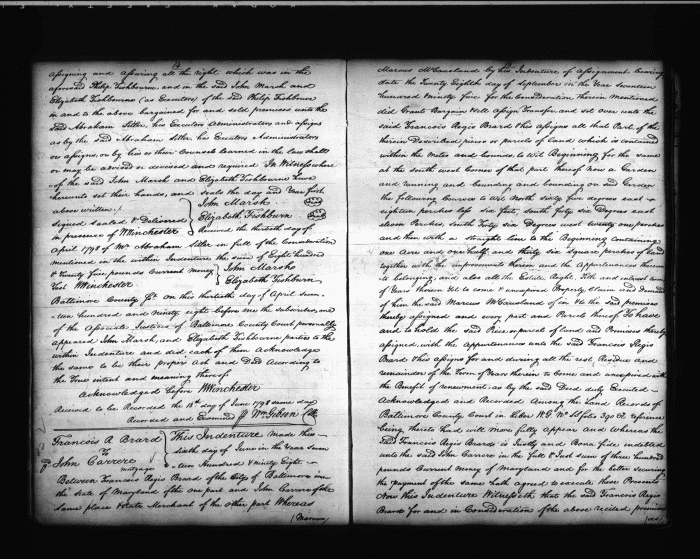 14
assigning and assuring all the right which was in the
aforesaid Philip Fishbourne, and in the said John Marsh and
Elizabeth Fishbourne (as Executors) of the said Philip Fishbourne
in and to the above bargained for and sold premises unto the
said Abraham Sitler, his Executors Administrators and assigns
as by the said Abraham Sitler his Executors Administrators
or assigns, or by his or their Counsels learned in the law shall
or may be advised or devised and required In Witness where
-of the said John Marsh and Elizabeth Fishbourne have
hereunto set their hands, and seals the day and Year first
above written
John Marsh
Signed sealed & Delivered
Elizabeth Fishburn
in presence of WWinchester
Received the thirtieth day of
April 1798 of Mr Abraham Sitler in full of the Consideration
mentioned in the within Indenture the sum of Eight hundred
& Twenty five pounds Current Money
John Marsh
Test WWinchester
Elizabeth Fishburn
Baltimore County Sct On this thirtieth day of April seven
-teen hundred and ninety eight before me the subscriber, one
of the Associate Justices of Baltimore County Court personally
appeared John Marsh, and Elizabeth Fishbourne parties to the
within Indenture and did each of them Acknowledge
the same to be their proper Act and Deed According to
the true intent and meaning thereof
Acknowledged before WWinchester
Received to be Recorded the 18th day of June 1798 same day
Recorded and Examined Wm Gibson Clk
Francois R Board
This Indenture made this
To
sixth day of June in the Year Seven
John Carrere
-teen Hundred & ninety Eight
mortgage
Between Francois Regis Board of the City of Baltimore in
the state of Maryland of the one part and John Carrere of the
same place & state Merchant of the other part Whereas
(Marcus)
Marcus McCausland by his Indenture of Assignment bearing
date the Twenty Eighth day of September in the Year seventeen
hundred ninety five for the Consideration therein Mentioned
did Grant Bargain Sell assign Transfer and set over unto the
said Francois Regis Board & his assigns all that Part of the
therein Described piece or parcels of Land which is contained
within the metes and bounds, to wit Beginning for the same
at the south west Corner of that part thereof now a Garden
and running and bounding and bounding on said Garden
the following Courses to wit North sixty five degrees east
eighteen perches less six feet, south forty six Degrees east
eleven Perches, South Forty six Degrees west twenty one perches
and then with a straight line to the Beginning Containing
one Acre and one half, and thirty six square perches of Land
together with the improvements thereon and the Appurtenances thereun
to belonging, and also all the Estate Right, Title and interest term
of Years therein Yet to come & unexpired Property Claim and demand
of him the said Marcus McCausland of in & to the said premises
thereby assigned and every part and Parcel thereof To have
and to hold the said Piece or parcel of Land and Premises thereby
assigned, with the appurtenances unto the said Francois Regis
Board & his assigns for and during all the rest Residue and
remainder of the Term of Years therein to come and unexpired with
the Benefit of renewment. as by the said Deed duly Executed
Acknowledged and Recorded Among the Land Records of
Baltimore County Court in Liber
reference
being thereto had will more fully appear and Whereas the
said Francois Regis Board is Justly and Bona fide indebted
unto the said John Carrere in the full & Just sum of three hundred
pounds Current Money of Maryland and for the better securing
the payment of the same hath agreed to execute these Presents
Now this Indenture Witnesseth that the said Francois Regis
Board for and in Consideration of the above recited premises